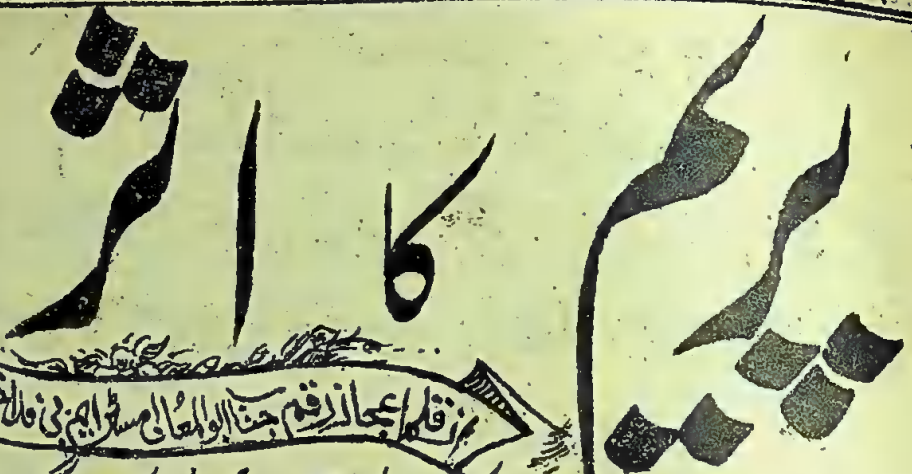 پریم کا اثر
از قلم اعجاز رقم جناب ابوالمعالی مسٹر ایم بی